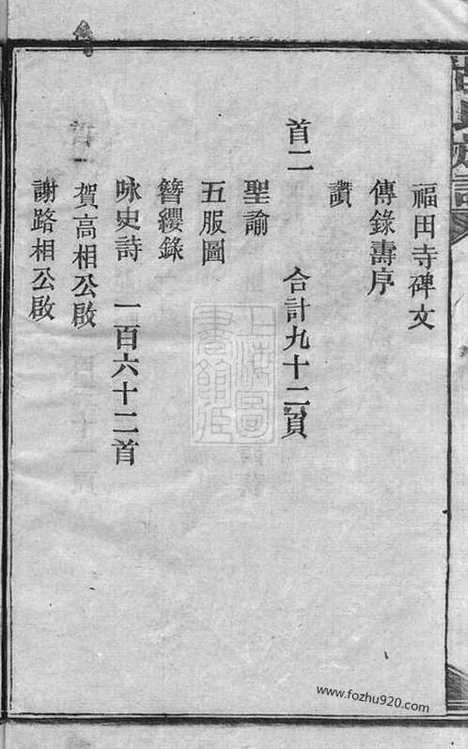 福田寺碑文
傳錄壽序
讚
首二 合計九十二頁
聖諭
五服圖
簪纓錄
咏史詩 一百六十二首
賀高相公啟
謝路相公啟
www.fozhu920.com